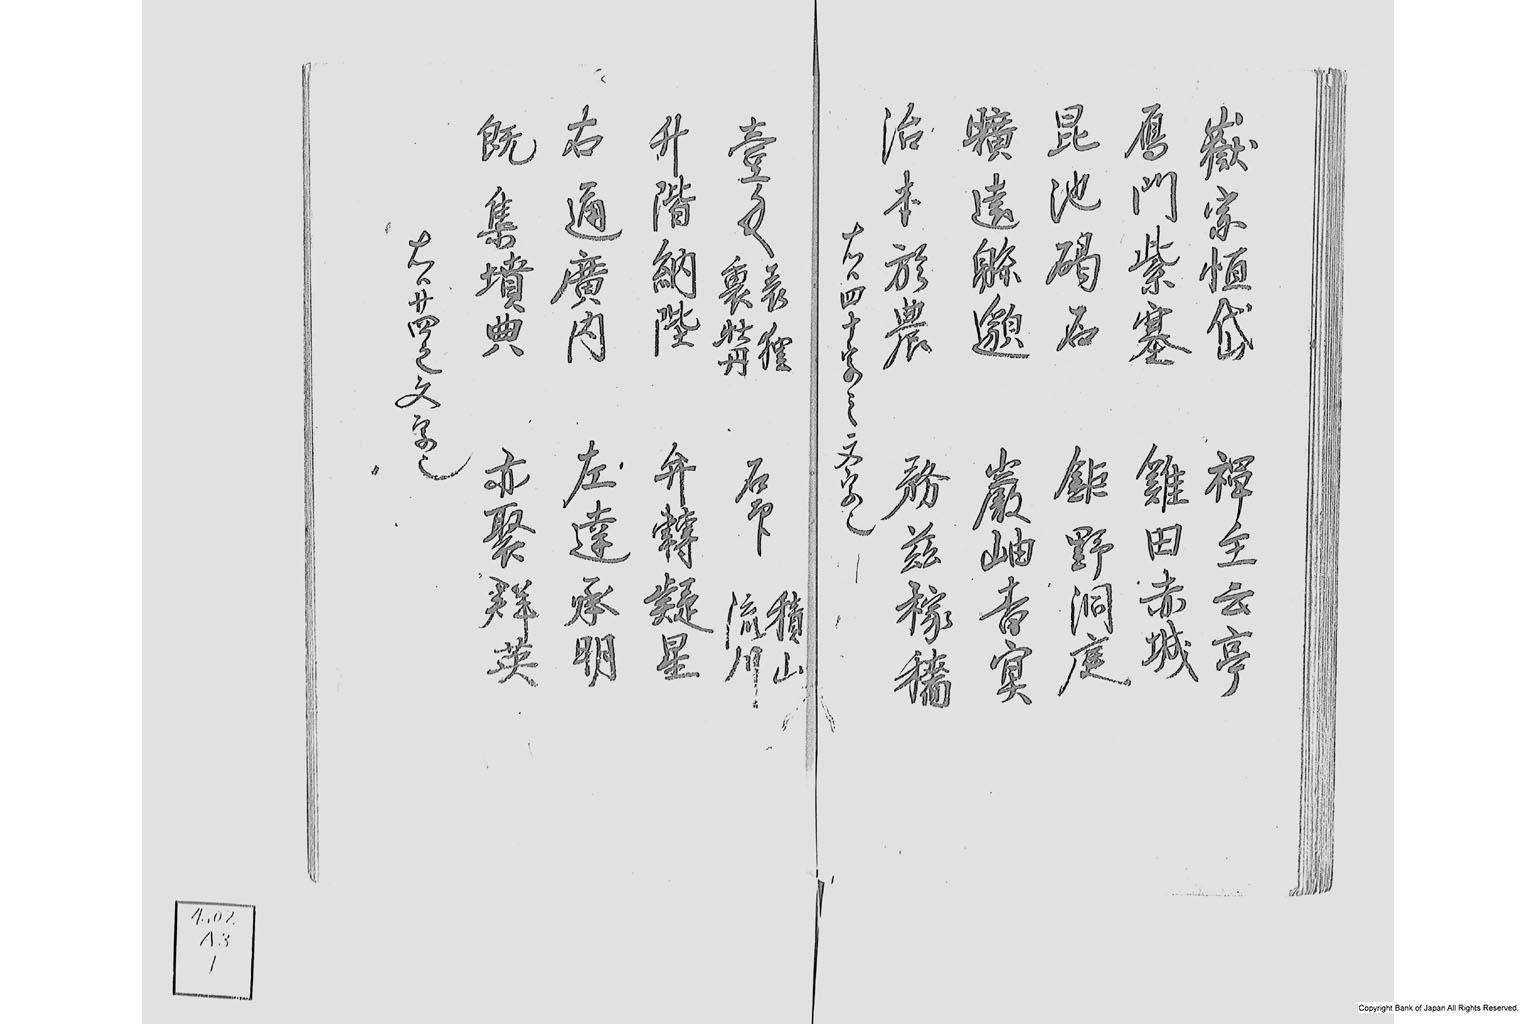 嶽宗恒岱 禅主云亭
鴈門紫塞 雞田赤城
昆池碣石 鉅野洞庭
曠遠緜邈 巌岫杳冥
治本於農 務兹稼穡
右ハ四十字之文字也
壹匁 表狸 裏牡丹 石印 積山 流川
升階納陛 弁轉疑星
右通廣内 左達承明
既集墳典 亦聚群英
右ハ廿四之文字也
4.02
A3
1
Copyright Bank of Japan All Rights Reserved.